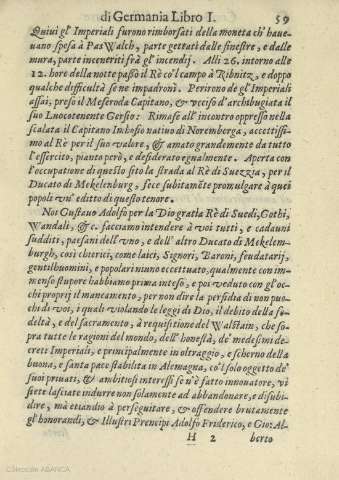 di Germania Libro I. 59
Quiui gl' Imperiali furono rimborsati della moneta ch' haue-
uano spesa à PasWalch, parte gettati dalle finestre, e dalle
mura, parte inceneriti frà gl' incendij. Alli 26. intorno alle
12. hore della notte passò il Rè co'l campo à Ribnitz, e doppo
qualche difficultà se ne impadronì. Perirono de gl' Imperiali
assai, preso il Meseroda Capitano, & vcciso d' archibugiata il
suo Luocotenente Gersio: Rimase all' incontro oppresso nella
scalata il Capitano Imhosio natiuo di Noremberga, accettissi-
mo al Rè per il suo valore, & amato grandemente da tutto
l' essercito, pianto però, e desiderato egualmente. Aperta con
l' occupatione di questo sito la strada al Rè di Suezzia, per il
Ducato di Mekelenburg, fece subitamēte promulgare à quei
popoli vn' editto di questo tenore.
Noi Gustauo Adolfo per la Dio gratia Rè di Suedi, Gothi,
Wandali, &c. facciamo intendere à voi tutti, e cadauni
sudditi, paesani dell' vno, e dell' altro Ducato di Mekelem-
burgh, così chierici, come laici, Signori, Baroni, feudatarij,
gentilhuomini, e popolari niuno eccettuato, qualmente con im-
menso stupore habbiamo prima inteso, e poi veduto con gl' oc-
chi proprij il mancamento, per non dire la perfidia di non puo-
chi di voi, i quali violando le leggi di Dio, il debito della fe-
deltà, e del sacramento, à requisitione del Walstain, che so-
pra tutte le ragioni del mondo, dell' honestà, de' medesimi de-
creti Imperiali, e principalmente in oltraggio, e scherno della
buona, e santa pace stabilita in Alemagna, co'l solo oggetto de'
suoi priuati, & ambitiosi interessi se n' è fatto innouatore, vi
siete lasciate indurre non solamente ad abbandonare, e disubi-
dire, mà etiandio à perseguitare, & offendere brutamente
gl' honorandi, & Illustri Prencipi Adolfo Friderico, e Gio: Al-
H 2 berto
Colección ABANCA